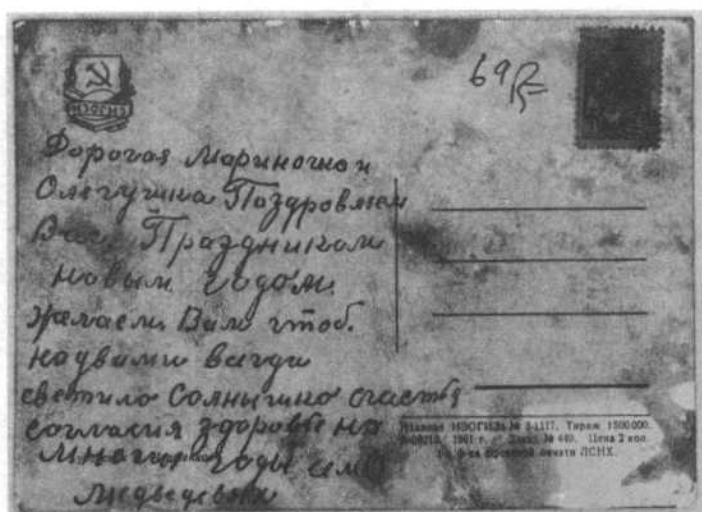 ИЗОГИЗ
69 р=
Дорогая Мариночка и
Олегушка Поздровляем
Вас Праздником
новым годом.
желаем Вам чтоб.
надвами вагда
светило Солнышко счастья
согласия здоровье на
многие годы семя
Медведевых
Издание ИЗОГИЗа № 3-1117. Тираж 1500000.
1961 г. Заказ № 440. Цена 2 коп.
печати ЛСНХ.